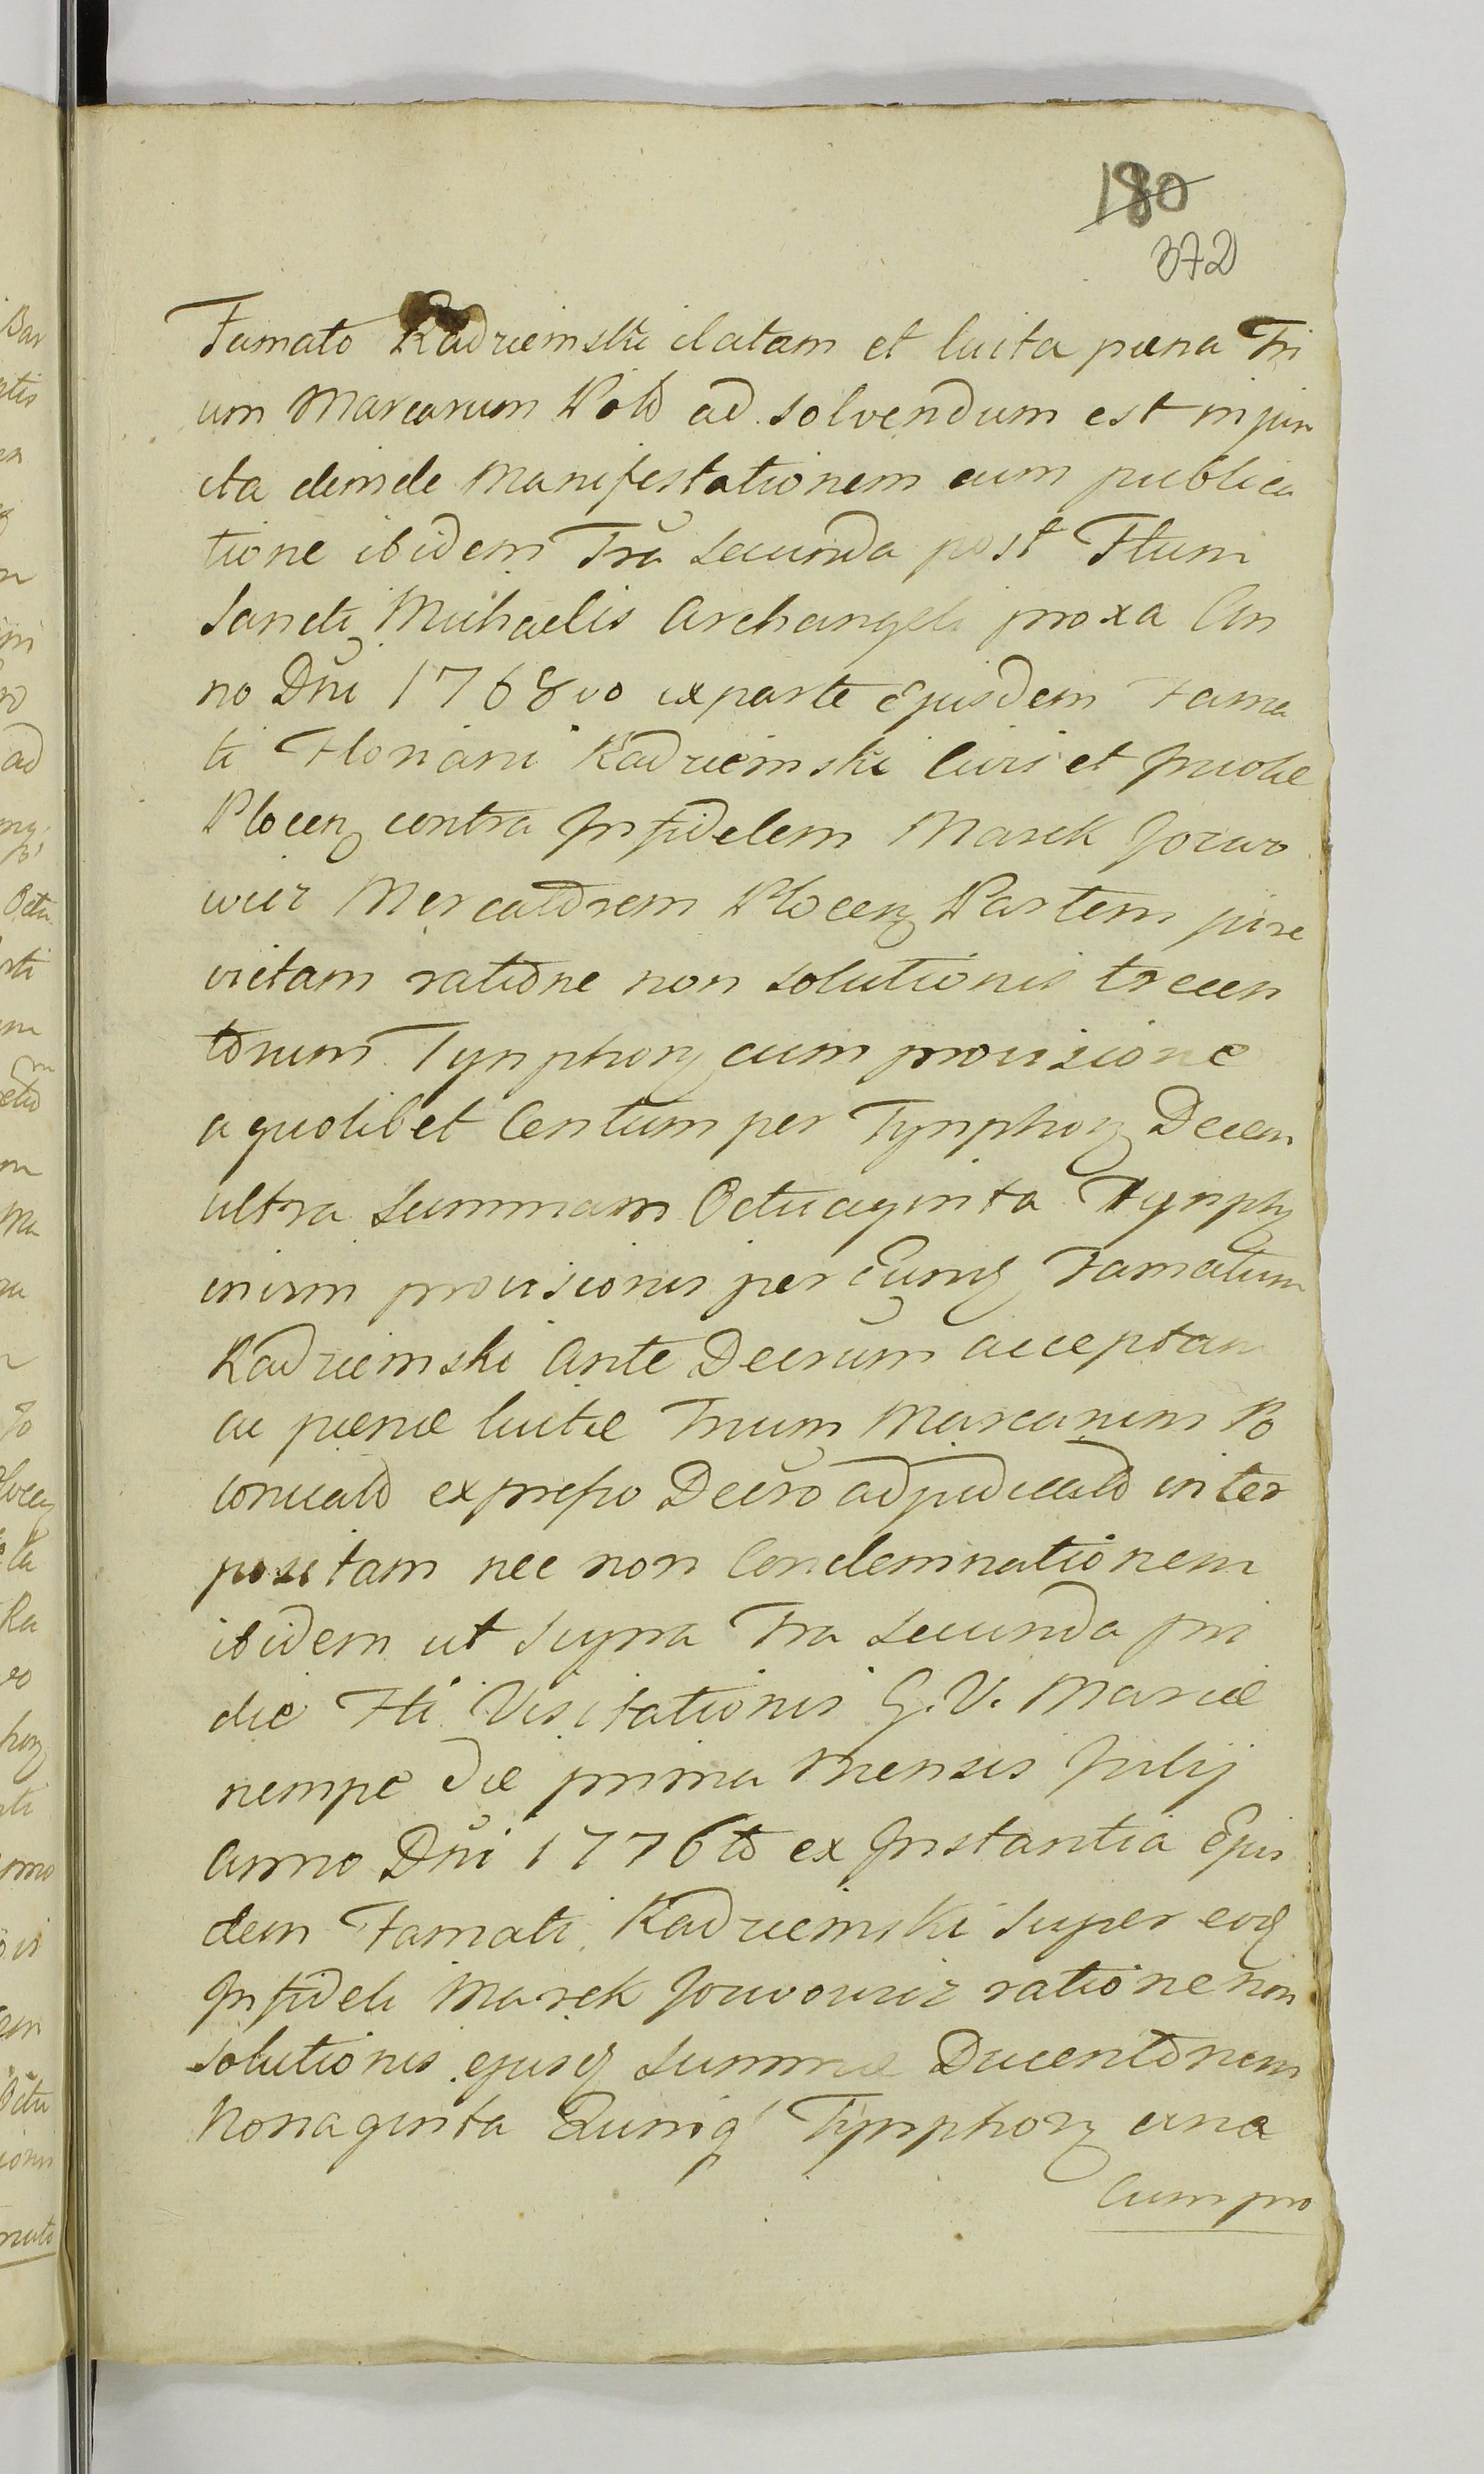 180
372
Famato Kadziemski datam et luita pœna Tri
um Marcarum Pold ad solvendum est injun
cta deinde Manifestationem cum publica
tione ibidem Fr̃a secunda post Ftum
Sancti Michaelis Archangeli proxa An
no Dñi 1768vo ex parte Ejusdem Fama
ti Floriani Kadziemski Civis et Incolæ
Plocen contra Infidelem Marek Jozwo
wicz Mercatorem Plocen Partem jure
victam ratione non solutionis trecen
torum Tynphorz cum provisione
a quolibet Centum per Tynphorz Decem
ultra summam Octuaginta Tynphz
inirm provisionis per Eumq Famatum
Kadziemski Ante Decrũm acceptam
ac pœnæ luitæ Trium Marcarum Po
lonicald ex prefio Decro adjudicald inter
positam nec non Condemnationem
ibidem ut supra Fra secunda pri
die Fti Visitationis G. V. Mariæ
nempe die prima Mensis Julij
Anno Dñi 1776to ex Instantia Ejus
dem Famati Kadziemski super eodq
Infideli Marek Jouvowicz ratione non
solutionis ejusq summæ Ducentorum
Nonaginta Quinq' Tynphorz una
Cum pro